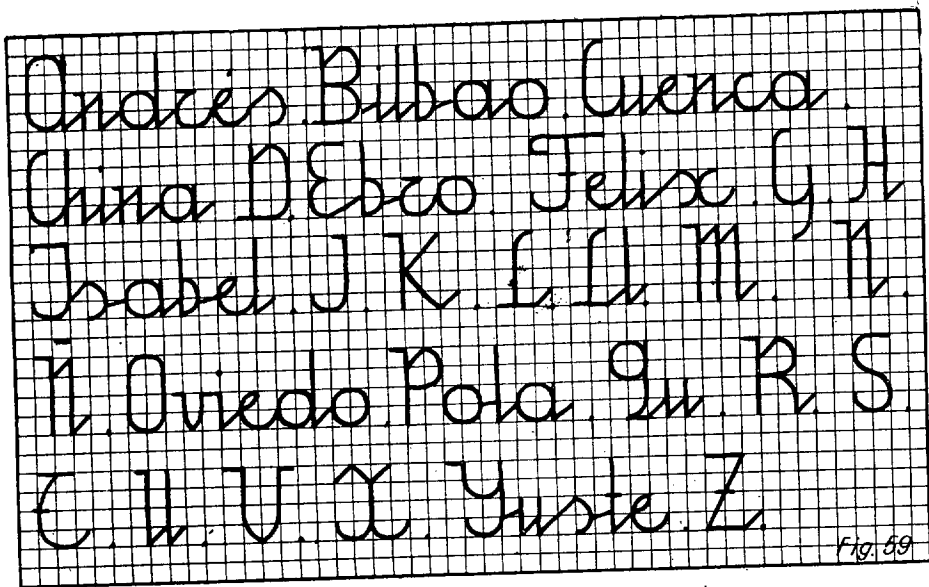 Andrés. Bilbao. Cuenca.
China. D. Ebro. Felix. G. H
Isabel. J. K. L. Ll. M. N.
Ñ. Oviedo. Pola. Qu. R. S.
T. U. V. X. Yuste. Z.
Fig. 59